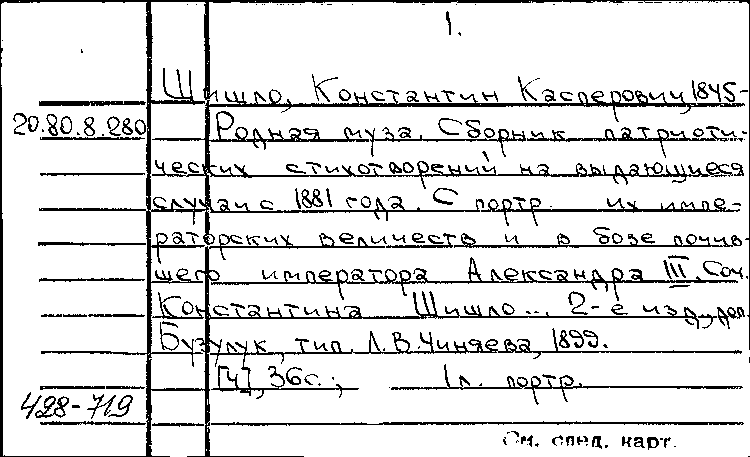 1.
Шишло, Константин Касперович, 1845-
20.80.8.280 Родная муза. Сборник патриоти-
ческих стихотворений на выдающиеся
случаи с 1881 года. С портр. их импе-
раторских величеств и в бозе почив-
шего императора Александра III. Соч.
Константина Шишло... 2-е изд., доп.
Бузулук, тип. Л.В. Чиняева, 1899.
[4], 36с.; 1л. портр.
428-719
См. след. карт.